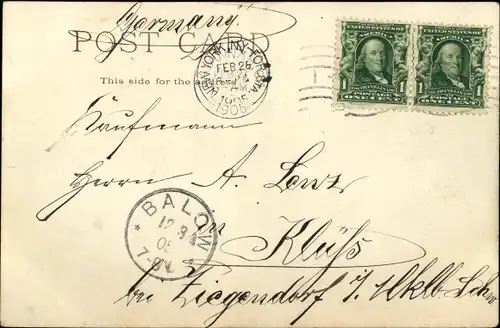 Germany
POST CARD
This side for the address
NEW YORK, N.Y.
FEB 25
AM
1905
Kaufmann
Herrn A. Lenz
BALOW
12 3
05
7-8 V
in Klüß
bei Ziegendorf i/ Mklb. Schw
UNITED STATES OF AMERICA
1 ONE CENT 1
UNITED STATES OF AMERICA
1 ONE CENT 1